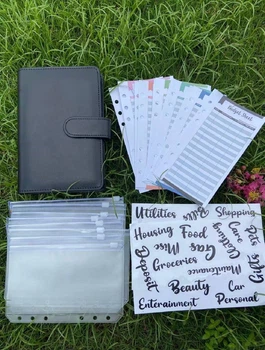 Budget Sheet
Utilities Bills Shopping
Housing Food Clothing Care Pets
Deposit Gas Misc
Groceries Maintenance Gifts
Beauty Car
Entertainment Personal